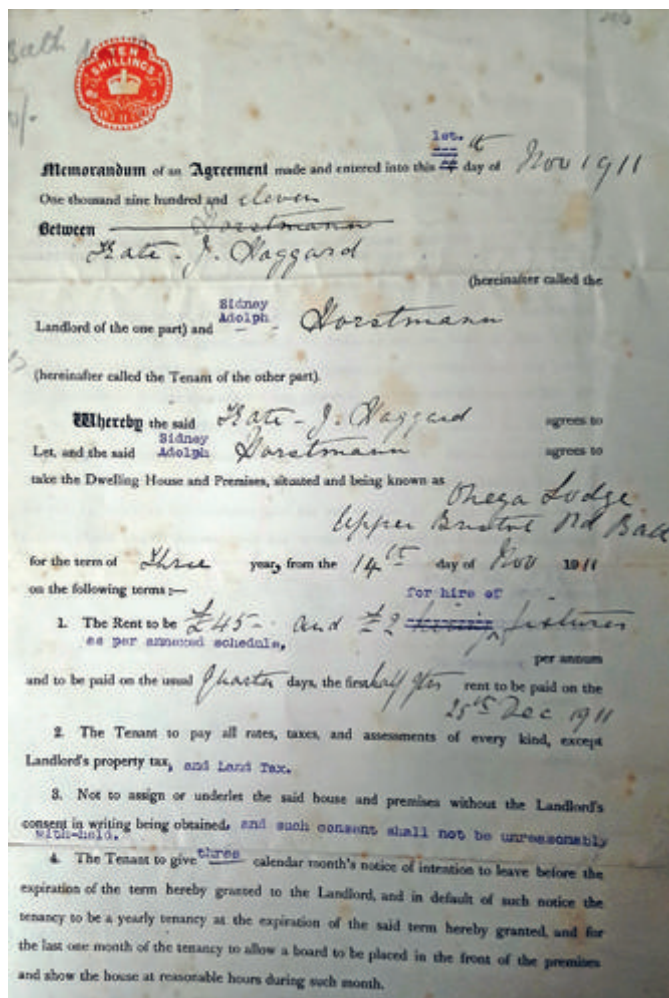 Bath
TEN
SHILLINGS
1st.
Memorandum of an Agreement made and entered into this th day of Nov 1911
One thousand nine hundred and eleven
Between Horstmann
Kate - J. Haggard
(hereinafter called the
Sidney
Landlord of the one part) and Adolph Horstmann
(hereinafter called the Tenant of the other part).
Whereby the said Kate - J. Haggard agrees to
Sidney
Let, and the said Adolph Horstmann agrees to
take the Dwelling House and Premises, situated and being known as
Onega Lodge
Upper Bristol Rd Bath
for the term of three year, from the 14th day of Nov 1911
on the following terms :—
for hire of
1. The Rent to be £45 - and £2 fixtures
as per annexed schedule,
per annum
and to be paid on the usual Quarter days, the first half qtrs rent to be paid on the
25th Dec 1911
2. The Tenant to pay all rates, taxes, and assessments of every kind, except
Landlord's property tax, and Land Tax.
3. Not to assign or underlet the said house and premises without the Landlord's
consent in writing being obtained, and such consent shall not be unreasonably
with-held.
4. The Tenant to give three calendar month's notice of intention to leave before the
expiration of the term hereby granted to the Landlord, and in default of such notice the
tenancy to be a yearly tenancy at the expiration of the said term hereby granted, and for
the last one month of the tenancy to allow a board to be placed in the front of the premises
and show the house at reasonable hours during such month.